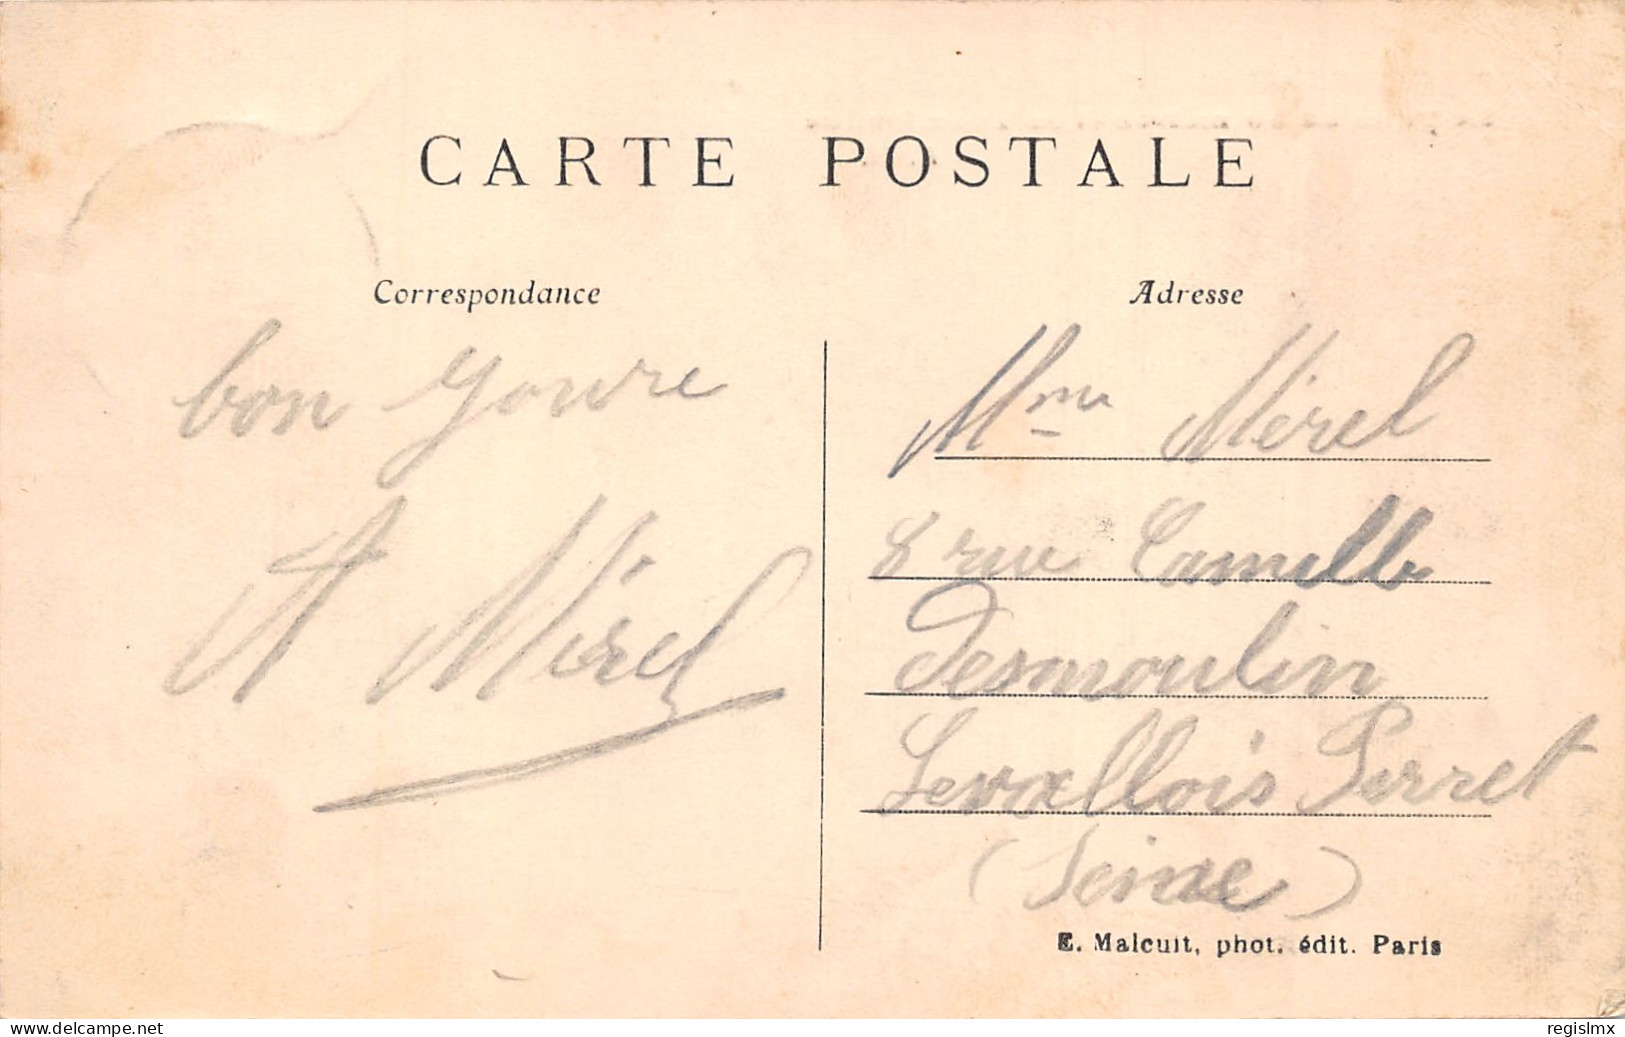 CARTE POSTALE
Correspondance
bon
A Mérel
Adresse
Mme Mérel
8 rue Camille
Desmoulin
Levallois Perret
(Seine)
E. Malcuit, phot. édit. Paris
www.delcampe.net
regislmx